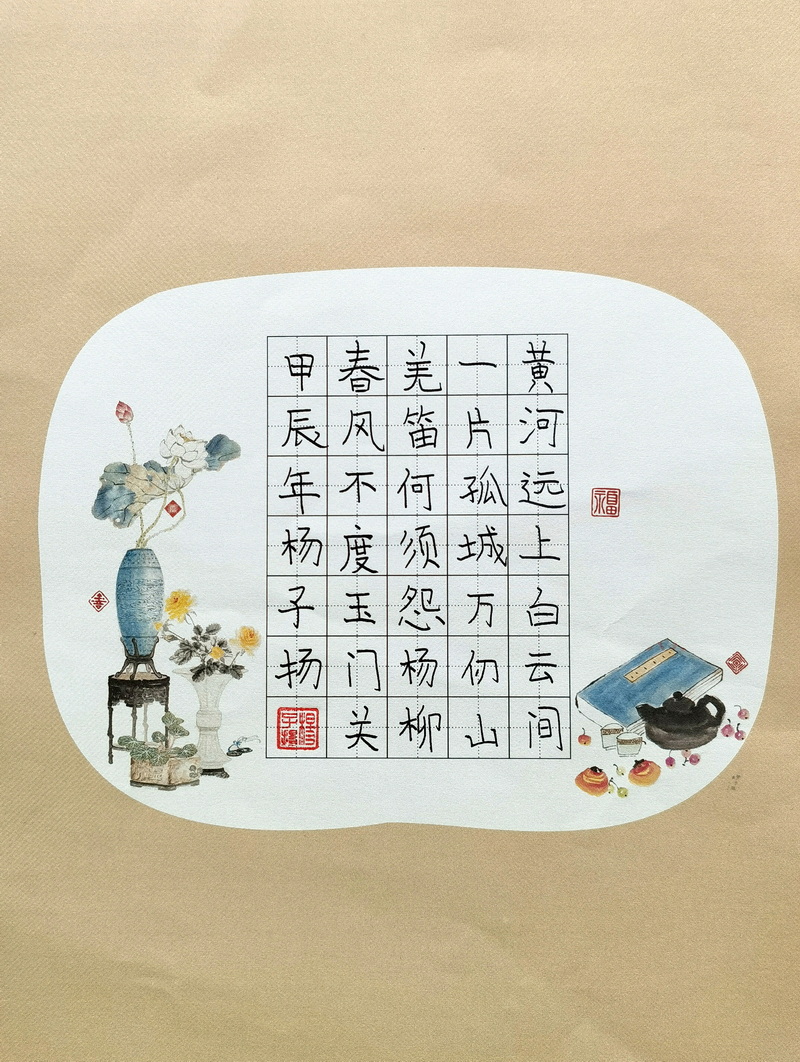 黄河远上白云间
一片孤城万仞山
羌笛何须怨杨柳
春风不度玉门关
甲辰年杨子扬
福